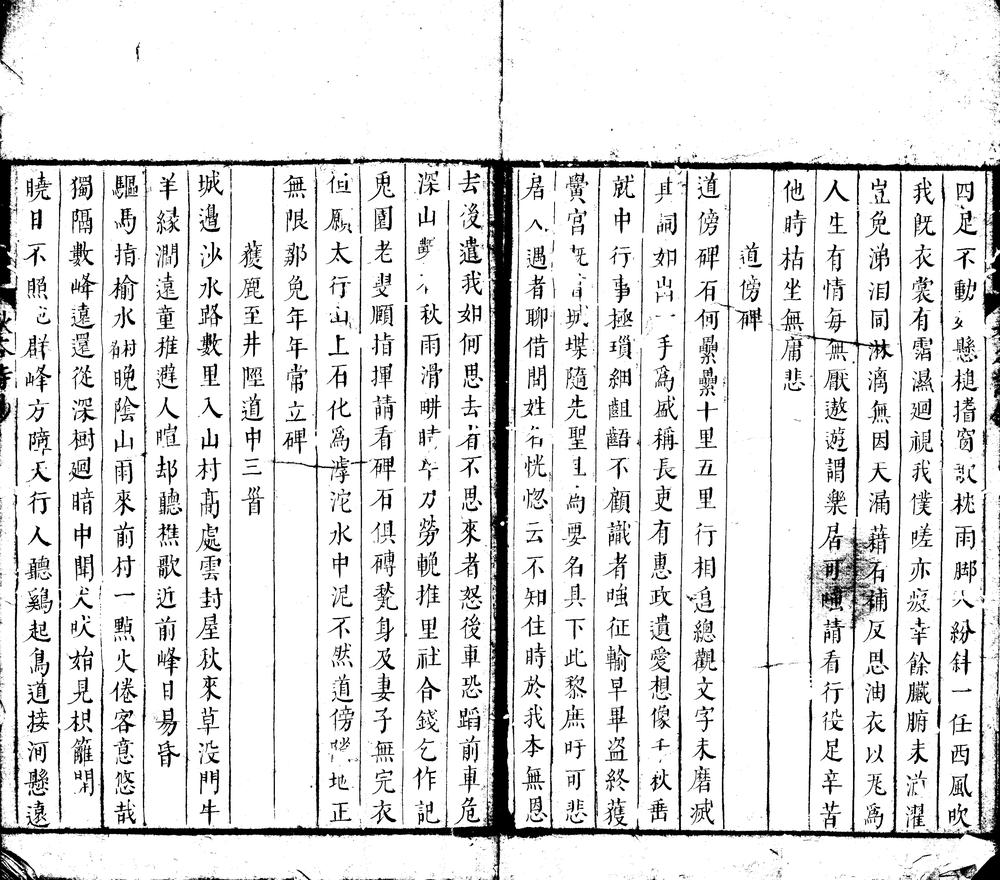 四足不動如懸槌撐窗欹枕雨脚入紛斜一任西風吹
我既衣裳有霑濕迴視我僕嗟亦疲幸餘臟腑未湔濯
豈免涕泪同淋漓無因天漏藉石補反思油衣以瓦爲
人生有情每無厭遨遊謂樂居可嗤請看行役足辛苦
他時枯坐無庸悲
道傍碑
道傍碑石何纍纍十里五里行相追總觀文字未磨滅
其詞如出一手爲盛稱長吏有惠政遺愛想像千秋垂
就中行事極瑣細齟齬不顧識者嗤征輸早畢盜終獲
黌宮既葺城堞隨先聖且爲要名具下此黎庶吁可悲
居人遇者聊借問姓名恍惚云不知住時於我本無恩
去後遣我如何思去者不思來者怒後車恐蹈前車危
深山鑿石秋雨滑畊時牛力勞輓推里社合錢乞作記
兎園老叟頤指揮請看碑石俱磚甃身及妻子無完衣
但願太行山上石化爲滹沱水中泥不然道傍隙地正
無限那免年年常立碑
獲鹿至井陘道中三首
城邊沙水路數里入山村高處雲封屋秋來草没門牛
羊緣澗遠童稚避人喧却聽樵歌近前峰日易昏
驅馬指榆水 晚陰山雨來前村一點火倦客意悠哉
獨隔數峰遠還從深樹廻暗中聞犬吠始見枳籬開
曉日不照地群峰方障天行人聽鷄起鳥道接河懸遠